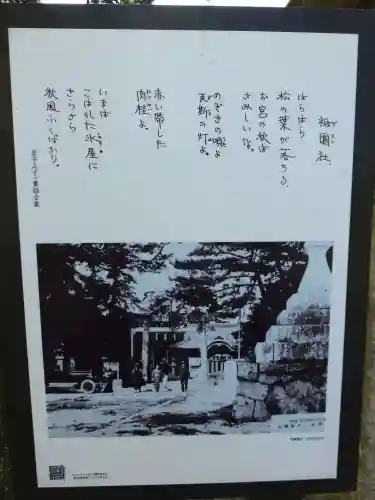 祇園社
はらはら
松の葉が落ちる、
お宮の秋は
さみしいな。
のぞきの唄よ
瓦斯の灯よ、
赤い帯した
肉桂よ。
いまは
こわれた氷屋に
さらさら
秋風ふくばかり。
金子みすゞ童謡全集